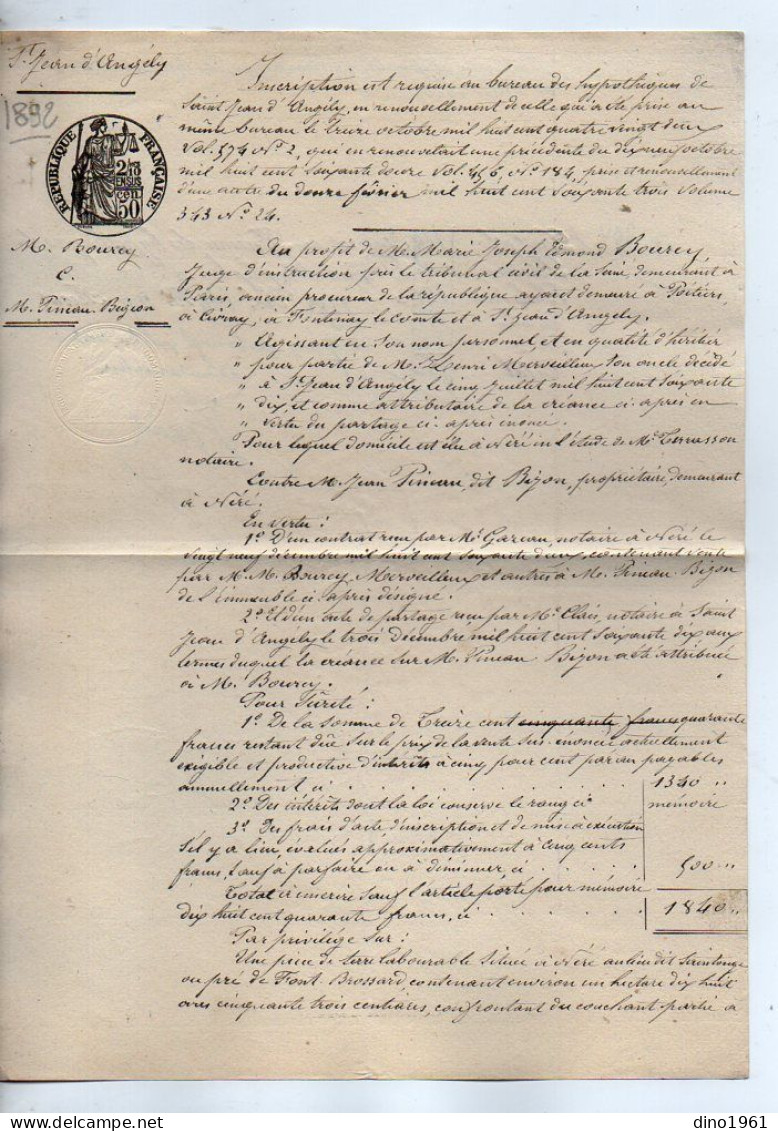 St Jean d'Angély
1892
RÉPUBLIQUE FRANÇAISE
2/10
EN SUS
50
M. Bourcy
C.
M. Pineau-Bizon
Inscription est requise au bureau des hypothèques de
Saint Jean d'Angély, en renouvellement de celle qui a été prise au
même bureau le treize octobre mil huit cent quatre vingt deux
Vol. 574 N° 2, qui en renouvelait une précédente du dix neuf octobre
mil huit cent soixante douze Vol. 466, N° 184, prise en renouvellement
d'une autre du douze février mil huit cent soixante trois volume
343 N° 24.
Au profit de M. Marie Joseph Edmond Bourcy
Juge d'instruction près le tribunal civil de la Seine demeurant à
Paris, ancien procureur de la république ayant demeuré à Poitiers,
à Civray, à Fontenay le Comte et à St Jean d'Angély.
" Agissant en son nom personnel et en qualité d'héritier
" pour partie de M. Henri Merveilleux son oncle décédé
" à St Jean d'Angély le cinq juillet mil huit cent soixante
" dix, et comme attributaire de la créance ci-après en
" vertu du partage ci-après énoncé.
Pour lequel domicile est élu à Néré en l'étude de Me Terrasson
notaire.
Contre M. Jean Pineau dit Bizon, propriétaire, demeurant
à Néré.
En vertu :
1° D'un contrat reçu par Me Gareau, notaire à Néré le
vingt neuf décembre mil huit cent soixante deux, contenant vente
par M. M. Bourcy, Merveilleux et autres à M. Pineau Bizon
de l'immeuble ci-après désigné.
2° Et d'un acte de partage reçu par Me Clais, notaire à Saint
Jean d'Angély le trois Décembre mil huit cent soixante dix aux
termes duquel la créance sur M. Pineau Bizon a été attribuée
à M. Bourcy.
Pour Sûreté :
1° De la somme de treize cent cinquante francs quarante
francs restant due sur le prix de la vente sus-énoncée actuellement
exigible et productive d'intérêts à cinq pour cent par an payables
annuellement ci . . . . . . . . 1340 "
2° Des intérêts dont la loi conserve le rang ci mémoire
3° Des frais d'acte, d'inscription et de mise à exécution
s'il y a lieu, évalués approximativement à cinq cents
francs, sauf à parfaire ou à diminuer, ci . . . . . 500 "
Total à inscrire sauf l'article porté pour mémoire
dix huit cent quarante francs, ci . . . . . 1840 "
Par privilège sur :
Une pièce de terre labourable située à Néré au lieu dit Saintonge
ou pré de Font Brossard, contenant environ un hectare dix huit
ares cinquante trois centiares, confrontant du couchant partie à
dino1961